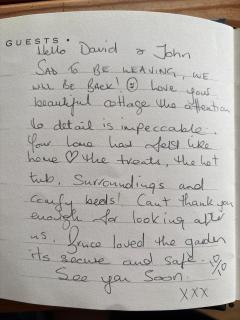 GUESTS •
Hello David & John
SAD TO BE LEAVING, WE
WILL BE BACK! ☺ Love your
beautiful cottage the attention
to detail is impeccable.
Your home has felt like
home ♡ the treats, the hot
tub, Surroundings and
comfy beds! Cant thank you
enough for looking after
us. Bruce loved the garden
its secure and safe. 10/10
See you Soon.
XXX